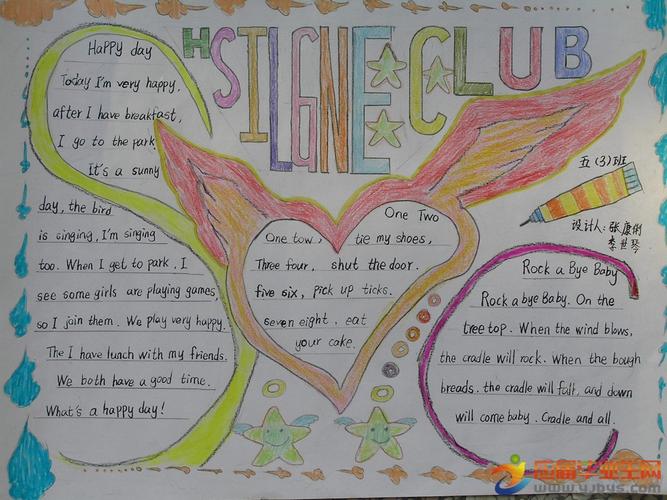 HSILGNE CLUB
Happy day
Today I'm very happy,
after I have breakfast,
I go to the park
It's a sunny
day, the bird
is singing, I'm singing
too. When I get to park, I
see some girls are playing games,
so I join them. We play very happy.
The I have lunch with my friends.
We both have a good time.
What's a happy day!
One Two
One tow, tie my shoes,
Three four, shut the door.
five six, pick up ticks.
seven eight, eat
your cake.
五(3)班
设计人:张康俐
李世琴
Rock a Bye Baby
Rock a bye Baby. On the
tree top. When the wind blows,
the cradle will rock. When the bough
breads. the cradle will fall, and down
will come baby. Cradle and all.
应届毕业生网
www.yjbys.com